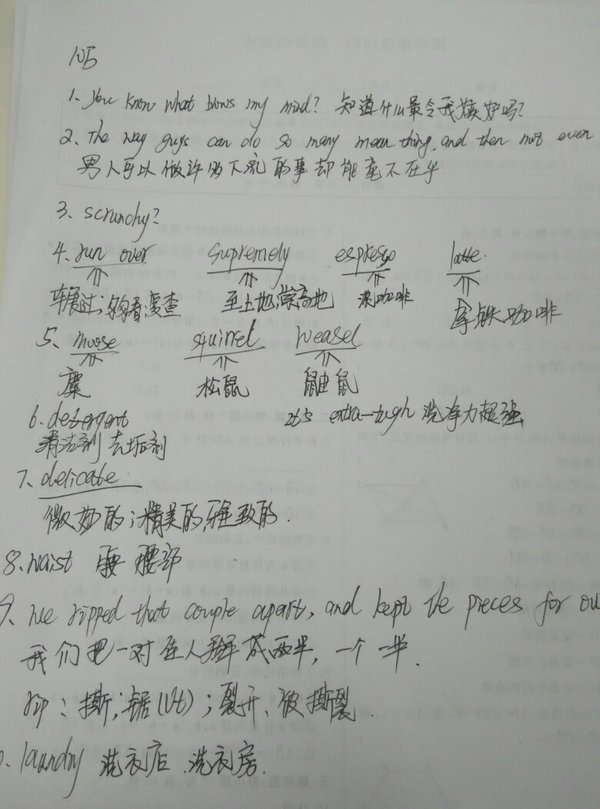 105
1、You know what blows my mind? 知道什么最令我嫉妒吗?
2、The way guys can do so many mean thing, and then not even
男人可以做许多下流的事却能毫不在乎
3、scrunchy?
4、run over supremely espresso latte
车展过; 查 至上地; 崇高地 浓咖啡 拿铁咖啡
5、moose squirrel weasel
麋 松鼠 鼬鼠
6、detergent It's extra-tough 洗净力超强
清洁剂 去垢剂
7、delicate:
微妙的; 精美的 雅致的.
8、waist 腰 腰部
9、We ripped that couple apart, and kept the pieces for ou
我们把一对佳人掰成两半, 一个一半.
rip: 撕; 锯 (Vt); 裂开、被撕裂.
laundry 洗衣店、洗衣房.